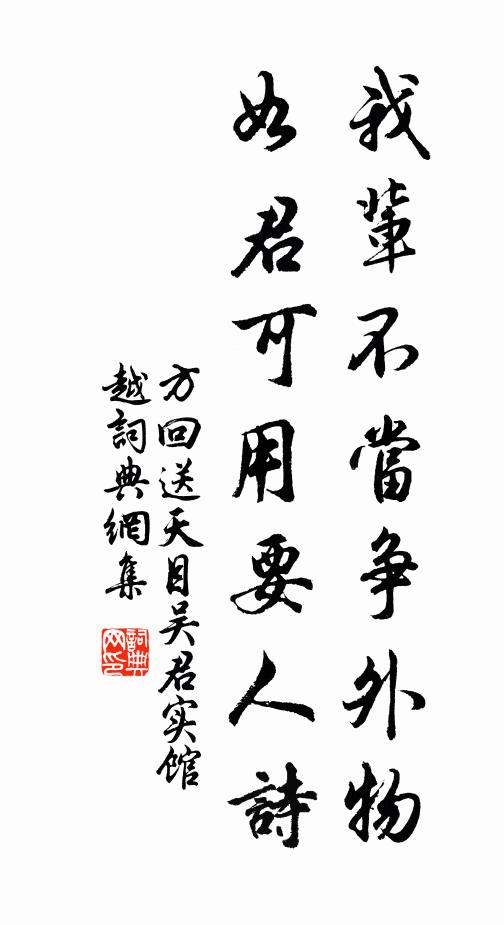 我輩不當争外物
如君可用要人詩
方回送天目吴君实馆
越詞典網集
詞典网印